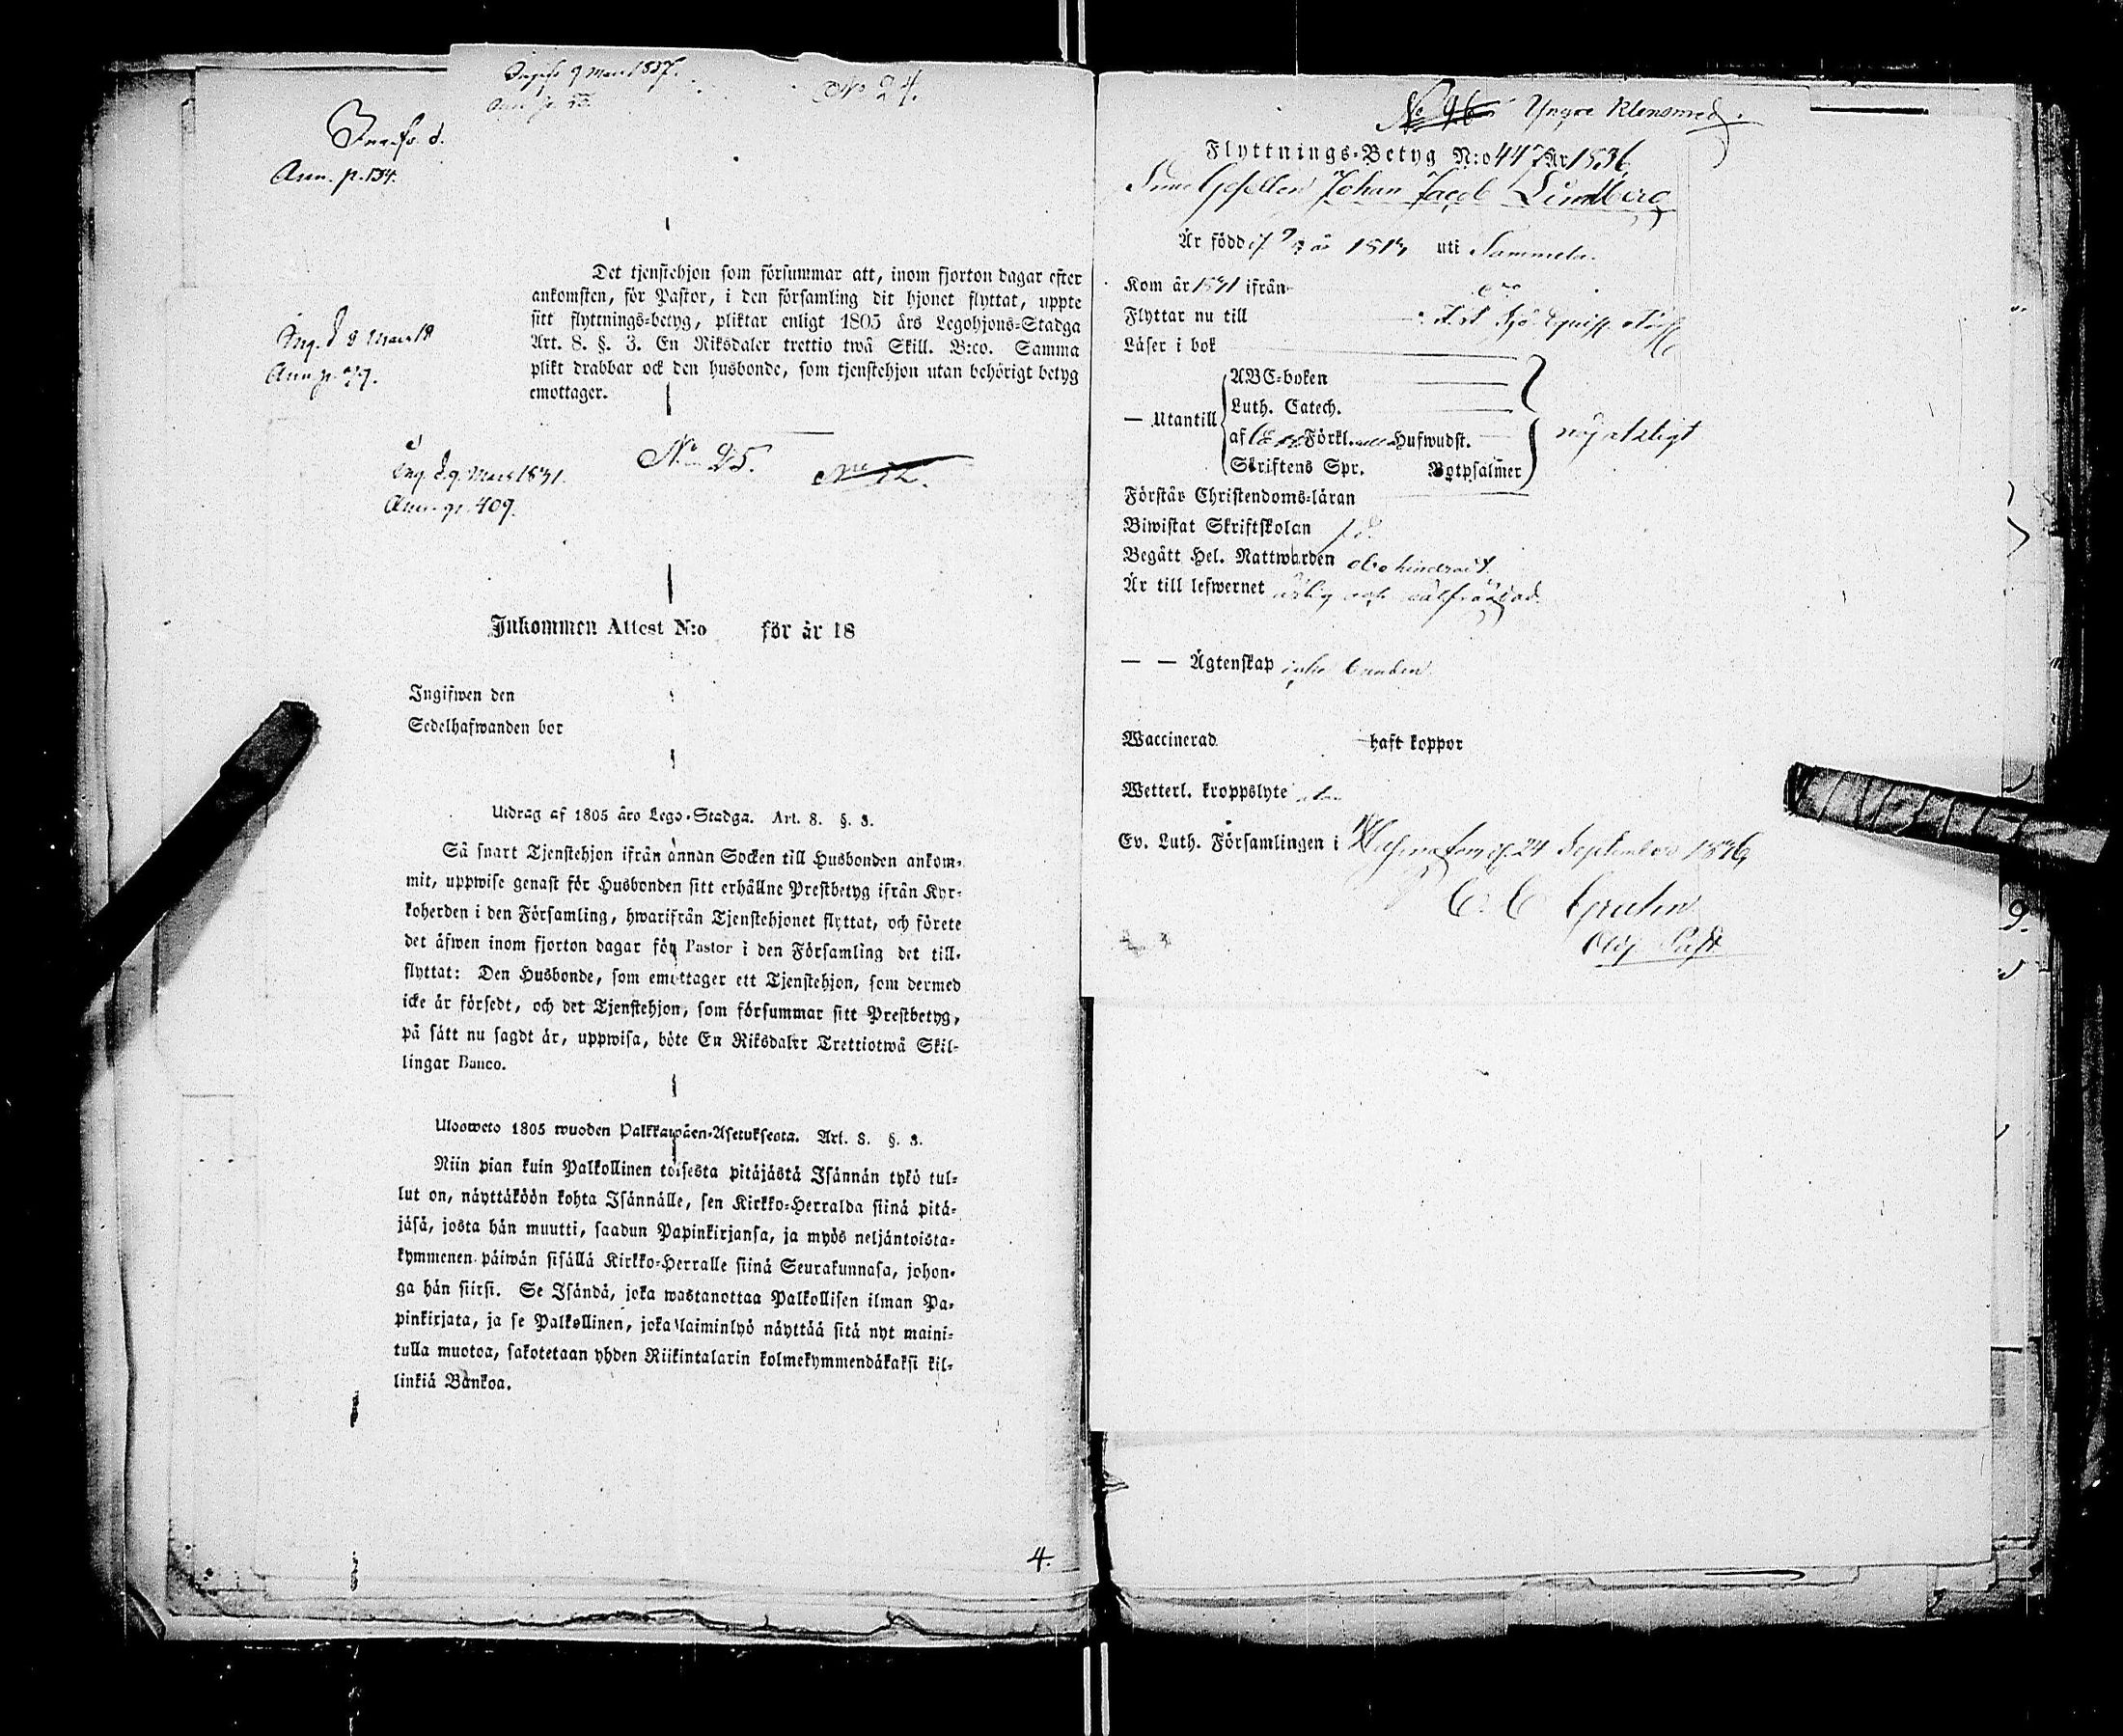 9 Mars 1837.
No 24.
Ann. p. 134.
Det tjenstehjon som försummar att, inom fjorton dagar efter
ankomsten, för Pastor, i den församling dit hjonet flyttat, uppte
sitt flyttnings-betyg, pliktar enligt 1805 års Legohjons-Stadga
Art. 8. §. 3. En Riksdaler trettio twå Skill. B:co. Samma
plikt drabbar ock den husbonde, som tjenstehjon utan behörigt betyg
emottager.
Ing. d 9 Mars 18
Ann p.
No 25.
Ing. d. 9. Mars
Ann. p. 409.
Inkommen Attest N:o för år 18
Ingifwen den
Sedelhafwanden bor
Utdrag af 1805 års Lego-Stadga. Art. 8. §. 3.
Så snart Tjenstehjon ifrån annan Socken till Husbonden ankom-
mit, uppwise genast för Husbonden sitt erhållne Prestbetyg ifrån Kyr-
koherden i den Församling, hwarifrån Tjenstehjonet flyttat, och förete
det äfwen inom fjorton dagar för Pastor i den Församling det till-
flyttat: Den Husbonde, som emottager ett Tjenstehjon, som dermed
icke är försedt, och det Tjenstehjon, som försummar sitt Prestbetyg,
på sätt nu sagdt är, uppwisa, böte En Riksdaler Trettiotwå Skil-
lingar Banco.
Ulosweto 1805 wuoden Palkkawäen-Asetuksesta. Art. 8. §. 3.
Niin pian kuin Palkollinen toisesta pitäjästä Isännän tykö tul-
lut on, näyttäköön kohta Isännälle, sen Kirkko-Herralda siinä pitä-
jäsä, josta hän muutti, saadun Papinkirjansa, ja myös neljäntoista-
kymmenen päiwän sisällä Kirkko-Herralle siinä Seurakunnasa, johon-
ga hän siirsi. Se Isändä, joka wastanottaa Palkollisen ilman Pa-
pinkirjata, ja se Palkollinen, joka laiminlyö näyttää sitä nyt maini-
tulla muotoa, sakotetaan yhden Riikintalarin kolmekymmendäkaksi kil-
linkiä Bankoa.
4.
No 96 Yngre Klensmed.
Flyttnings-Betyg N:o 447 År 1836
Gesellen Johan Jacob Lindberg
Är född d. år uti Sammola.
Kom år ifrån
Flyttar nu till
Läser i bok
— Utantill
ABC-boken
Luth. Catech.
af Förkl. Hufwudst.
Skriftens Spr. Botpsalmer
nöjaktligt
Förstår Christendoms-läran
Biwistat Skriftskolan
Begått Hel. Nattwarden obehindradt.
Är till lefwernet ärlig och wälfräjdad.
— — Ägtenskap icke bunden.
Waccinerad haft koppor
Wetterl. kroppslyte utan
Ev. Luth. Församlingen i d. 24 September 1836
C. C.
Adj. Past.
9.